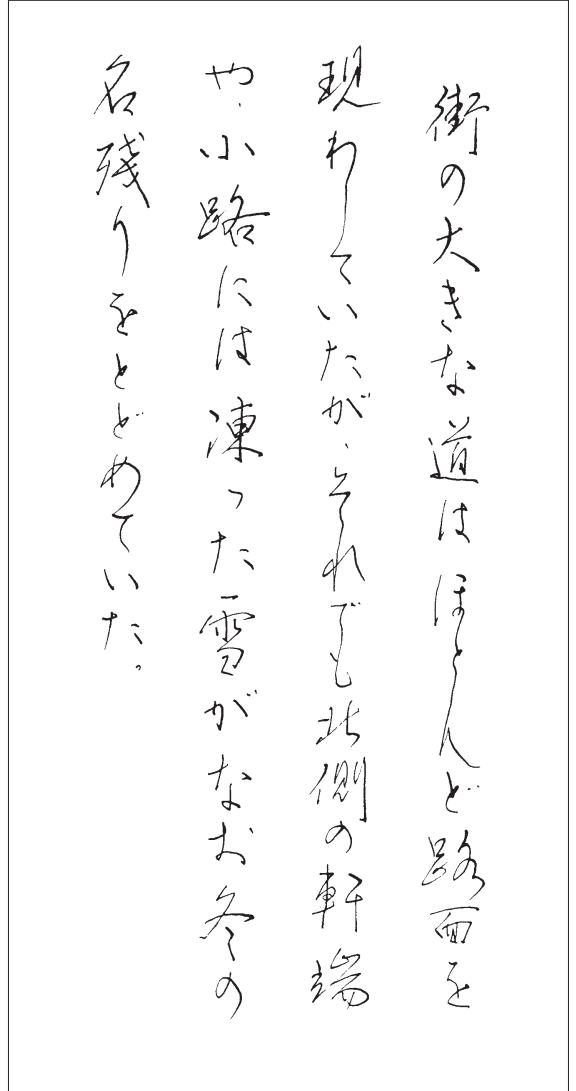 街の大きな道はほとんど路面を
現わしていたが、それでも北側の軒端
や、小路には凍った雪がなお冬の
名残りをとどめていた。